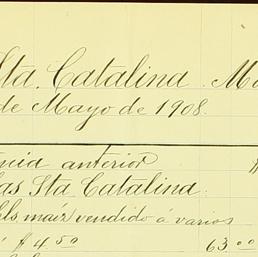 Sta. Catalina. M
de Mayo de 1908.
anterior
as Sta Catalina.
hls maíz vendido á varios
á $ 4.50 63.00